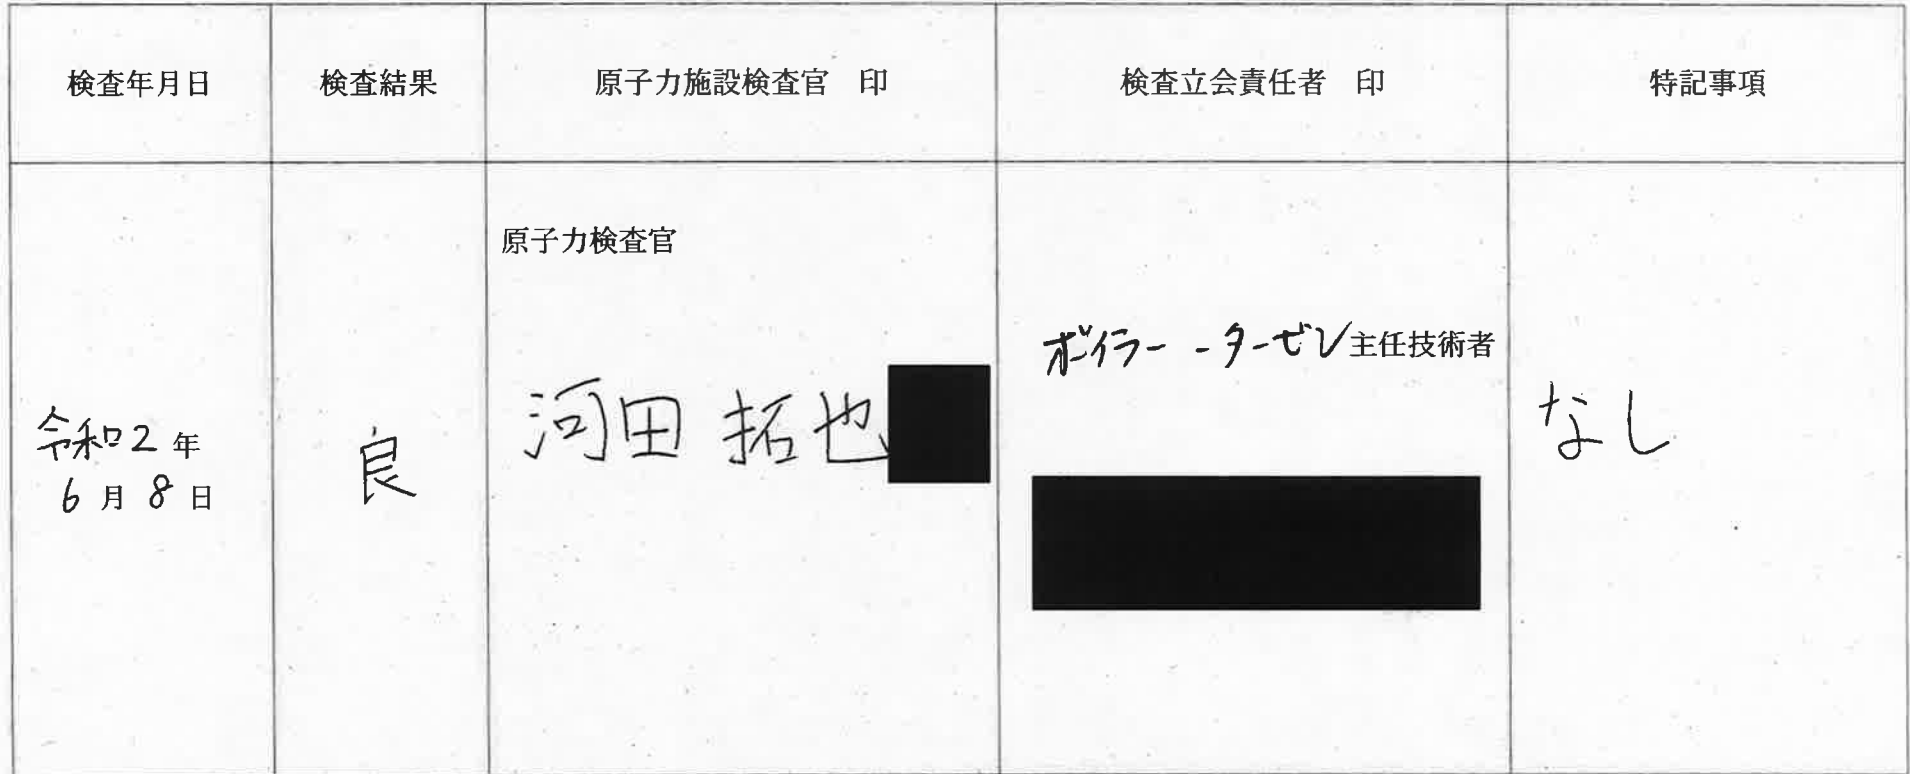 検査年月日
検査結果
原子力施設検査官 印
検査立会責任者 印
特記事項
令和2年
6月8日
良
原子力検査官
河田 拓也
ボイラー・タービン主任技術者
なし